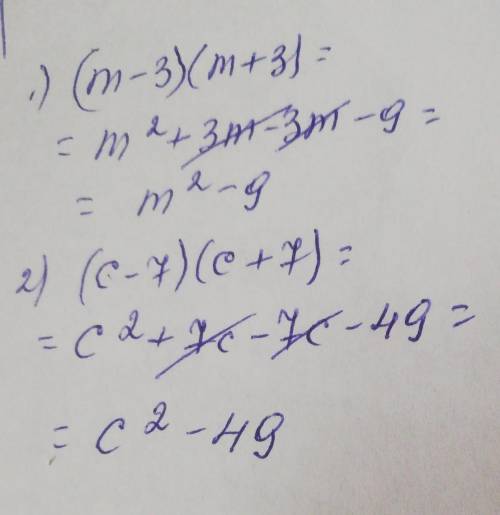 1) (m-3)(m+3)=
= m² + 3m - 3m - 9 =
= m² - 9
2) (c-7)(c+7)=
= c² + 7c - 7c - 49 =
= c² - 49